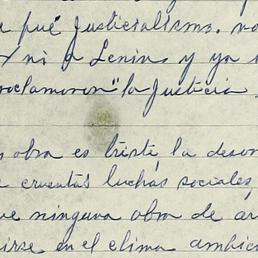 que Justicialismo. no
x ni a Lenin, y ya s
roclamaron "la Justicia
s obra es triste la deson
e cruentas luchas sociales,
ue ninguna obra de ar
irse en el clima ambie